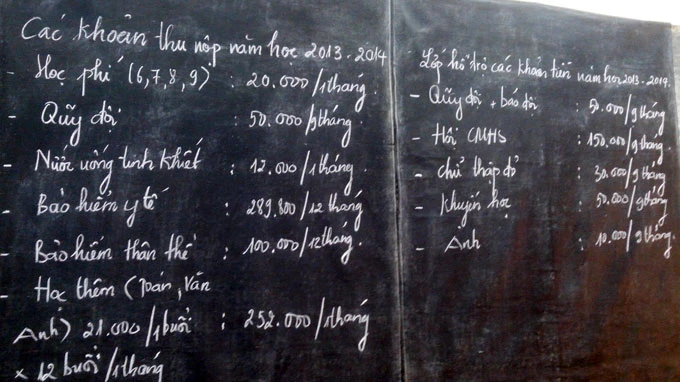 Các khoản thu nộp năm học 2013-2014
- Học phí (6,7,8,9) : 20.000/1tháng
- Quỹ đội : 50.000/9tháng
- Nước uống tinh khiết : 12.000/1tháng
- Bảo hiểm y tế : 289.800/12 tháng
- Bảo hiểm thân thể : 100.000/12tháng.
- Học thêm (Toán, Văn
Anh) 21.000/1buổi : 252.000/1tháng
x 12 buổi/1tháng
Lớp hỗ trợ các khoản tiền năm học 2013-2014.
- Quỹ đội + báo đội : 50.000/9 tháng
- Hội CMHS : 150.000/9tháng.
- chữ thập đỏ : 30.000/9tháng
- Khuyến học : 50.000/9tháng
- Ảnh : 10.000/9 tháng.